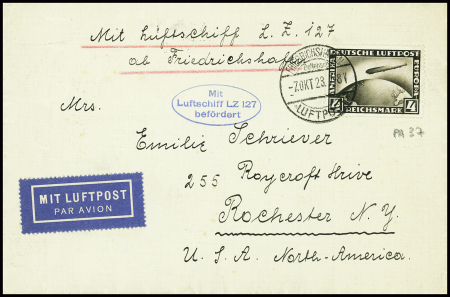 Mit Luftschiff L. Z. 127
ab Friedrichshafen
FRIEDRICHSHAFEN
-7.OKT 28. 
LUFTPOST
DEUTSCHE LUFTPOST
AMERIKA
EUROPA
4 REICHSMARK 4
Mit
Luftschiff LZ 127
befördert
PA 37
Mrs.
Emilie Schriever
255 Roycroft Hrive
MIT LUFTPOST
PAR AVION
Rochester N. Y.
U. S. A. North-America.